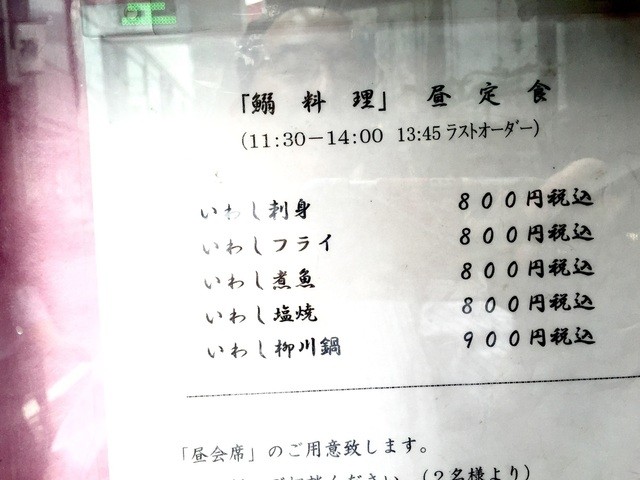 「鰯料理」 昼定食
(11:30－14:00 13:45 ラストオーダー)
いわし刺身 800円税込
いわしフライ 800円税込
いわし煮魚 800円税込
いわし塩焼 800円税込
いわし柳川鍋 900円税込
「昼会席」のご用意致します。
ください。(2名様より)